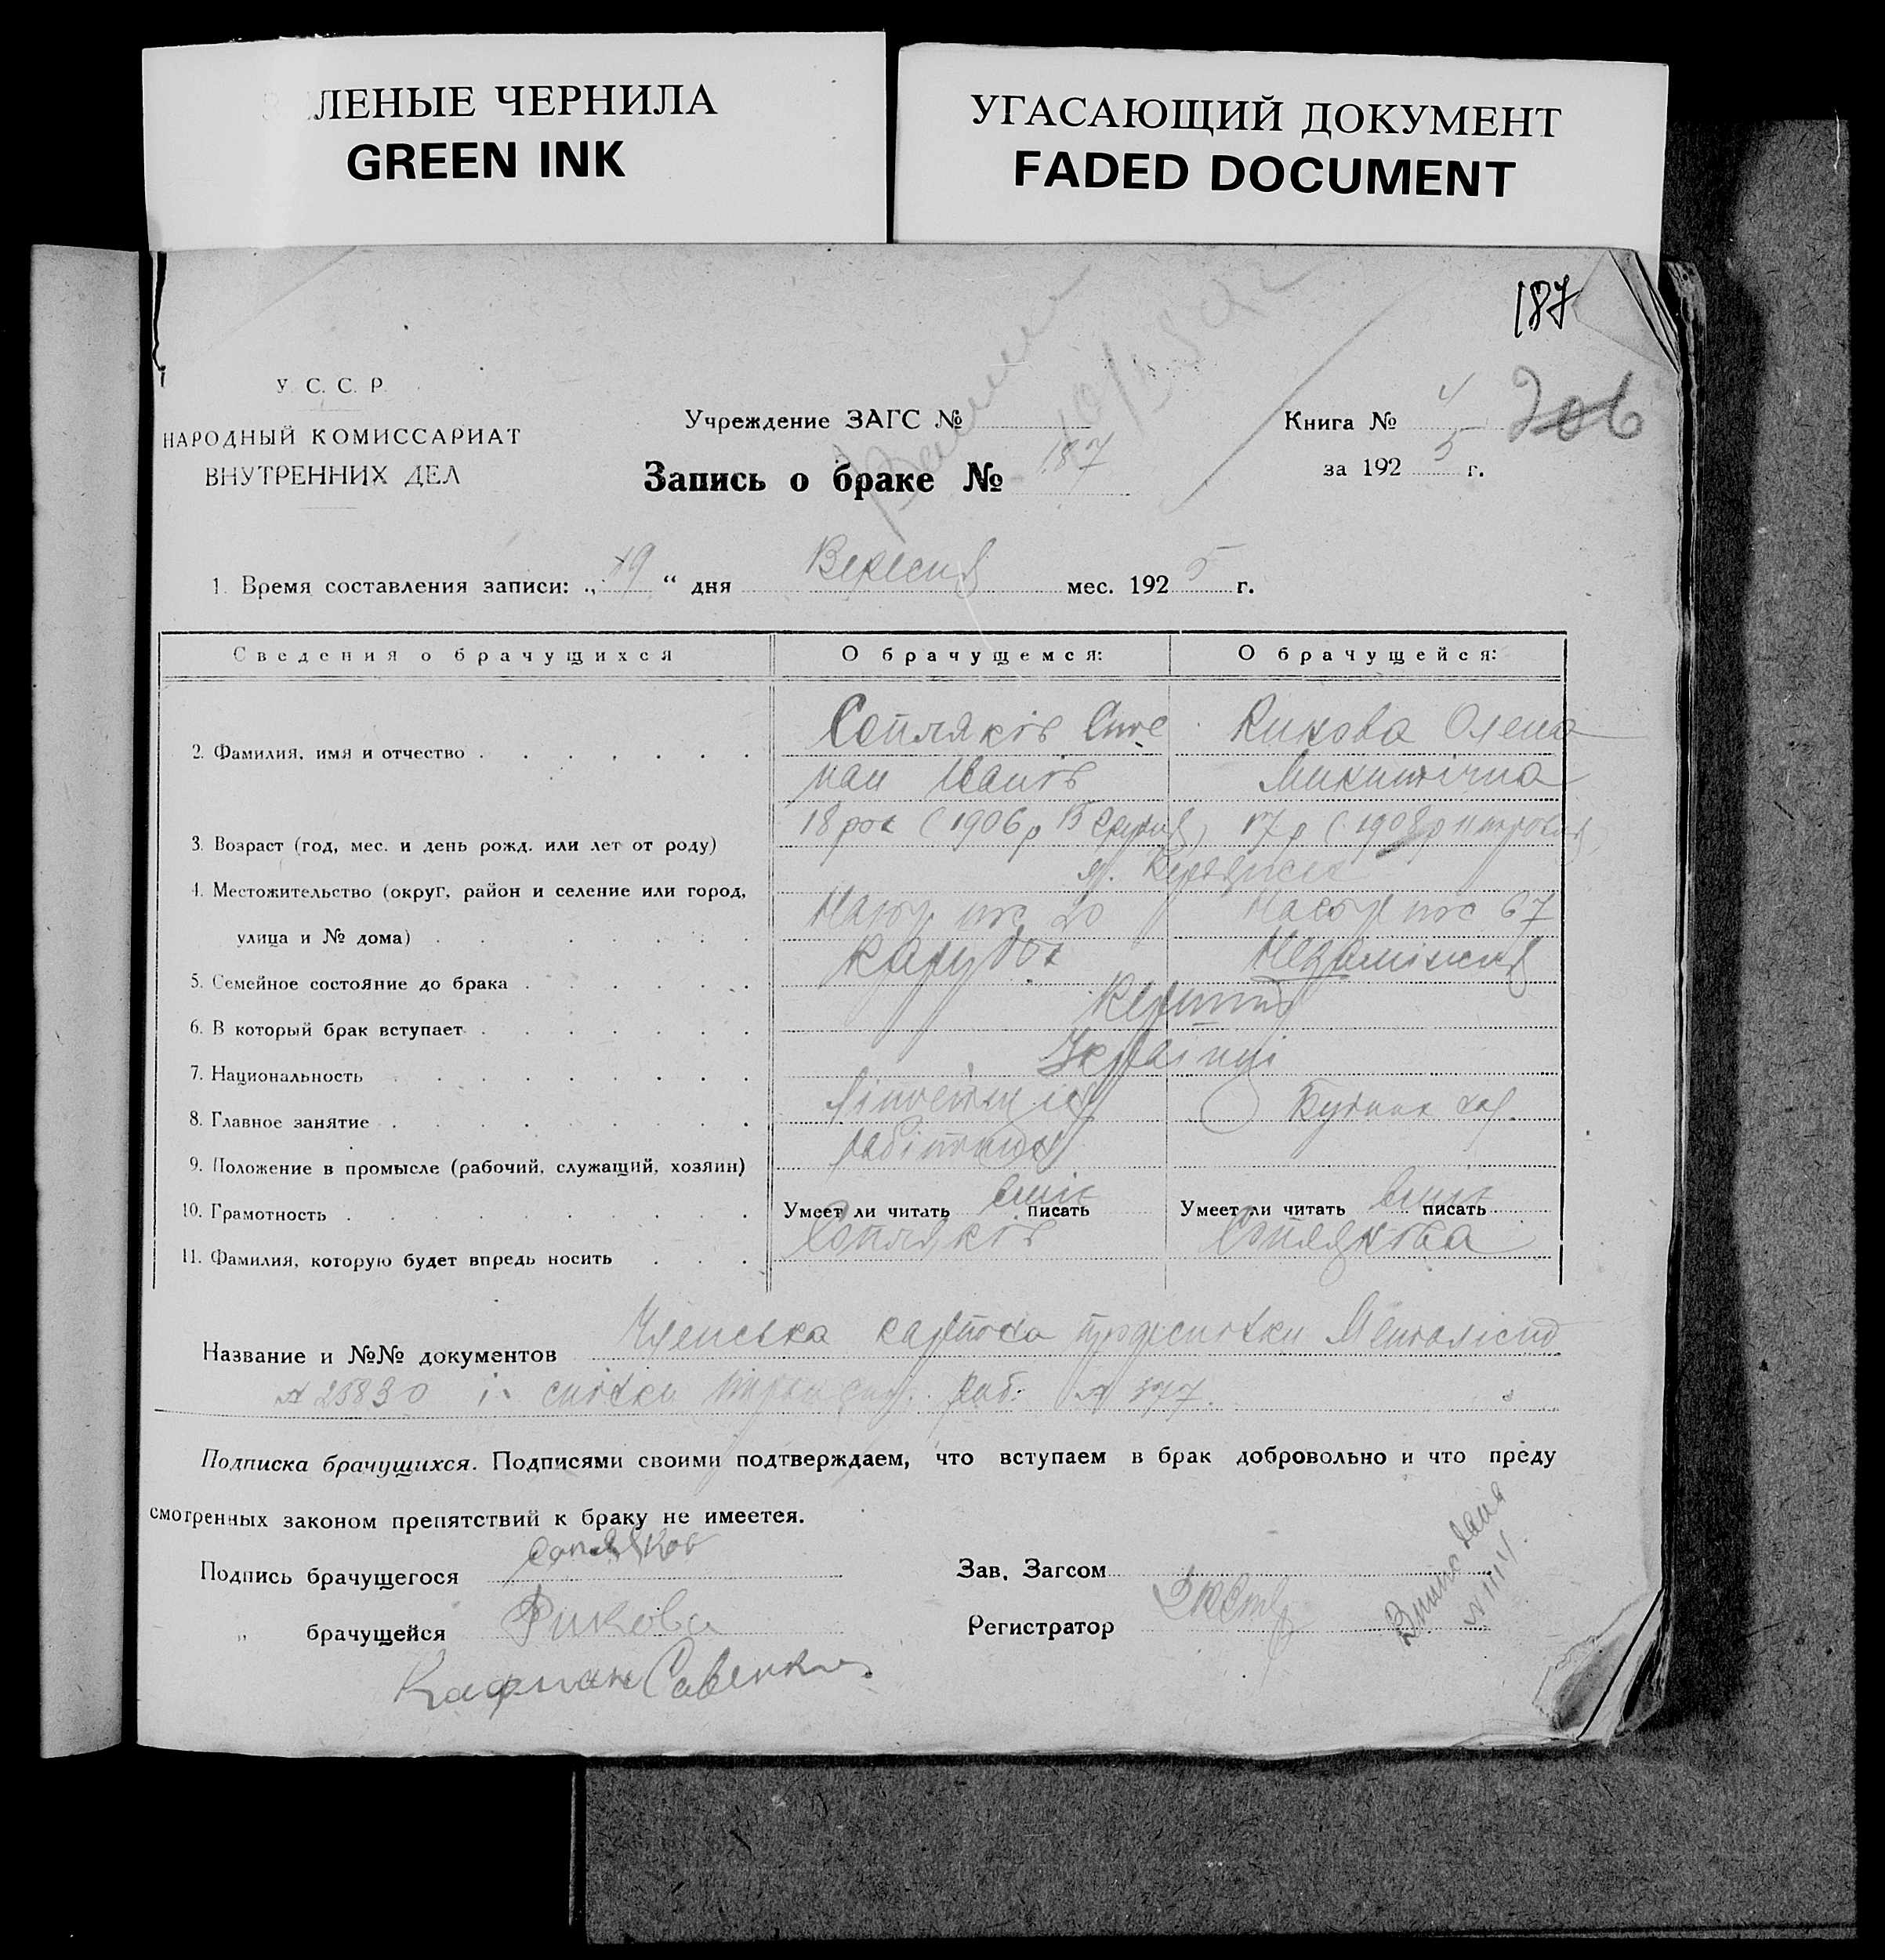 ЛЕНЫЕ ЧЕРНИЛА
GREEN INK
УГАСАЮЩИЙ ДОКУМЕНТ
FADED DOCUMENT
187
206
У. С. С. Р.
НАРОДНЫЙ КОМИССАРИАТ
ВНУТРЕННИХ ДЕЛ
Учреждение ЗАГС №
Запись о браке № 187
Книга № 4
за 192 5 г.
1. Время составления записи: „ 19 “ дня Вересня мес. 192 5 г.
Сведения о брачущихся
О брачущемся:
О брачущейся:
2. Фамилия, имя и отчество
Сопляків Сте
пан Іванів
Рикова Олена
Микитічна
3. Возраст (год, мес. и день рожд. или лет от роду)
18 рок (1906 р 15 Грудня)
17 р (1908 р
4. Местожительство (округ, район и селение или город,
улица и № дома)
20
67
5. Семейное состояние до брака
Парубок
Незаміжня
6. В который брак вступает
Перший
7. Национальность
Українці
8. Главное занятие
9. Положение в промысле (рабочий, служащий, хозяин)
робітник
10. Грамотность
Умеет ли читать вміє писать
Умеет ли читать вміє писать
11. Фамилия, которую будет впредь носить
Сопляків
Соплякова
Название и №№ документов Членська картка профспілки Металістів
№ 25830 і спілки роб. № 177.
Подписка брачущихся. Подписями своими подтверждаем, что вступаем в брак добровольно и что преду
смотренных законом препятствий к браку не имеется.
Подпись брачущегося Сопляков
„ брачущейся Рикова
Зав. Загсом
Регистратор
Савенко